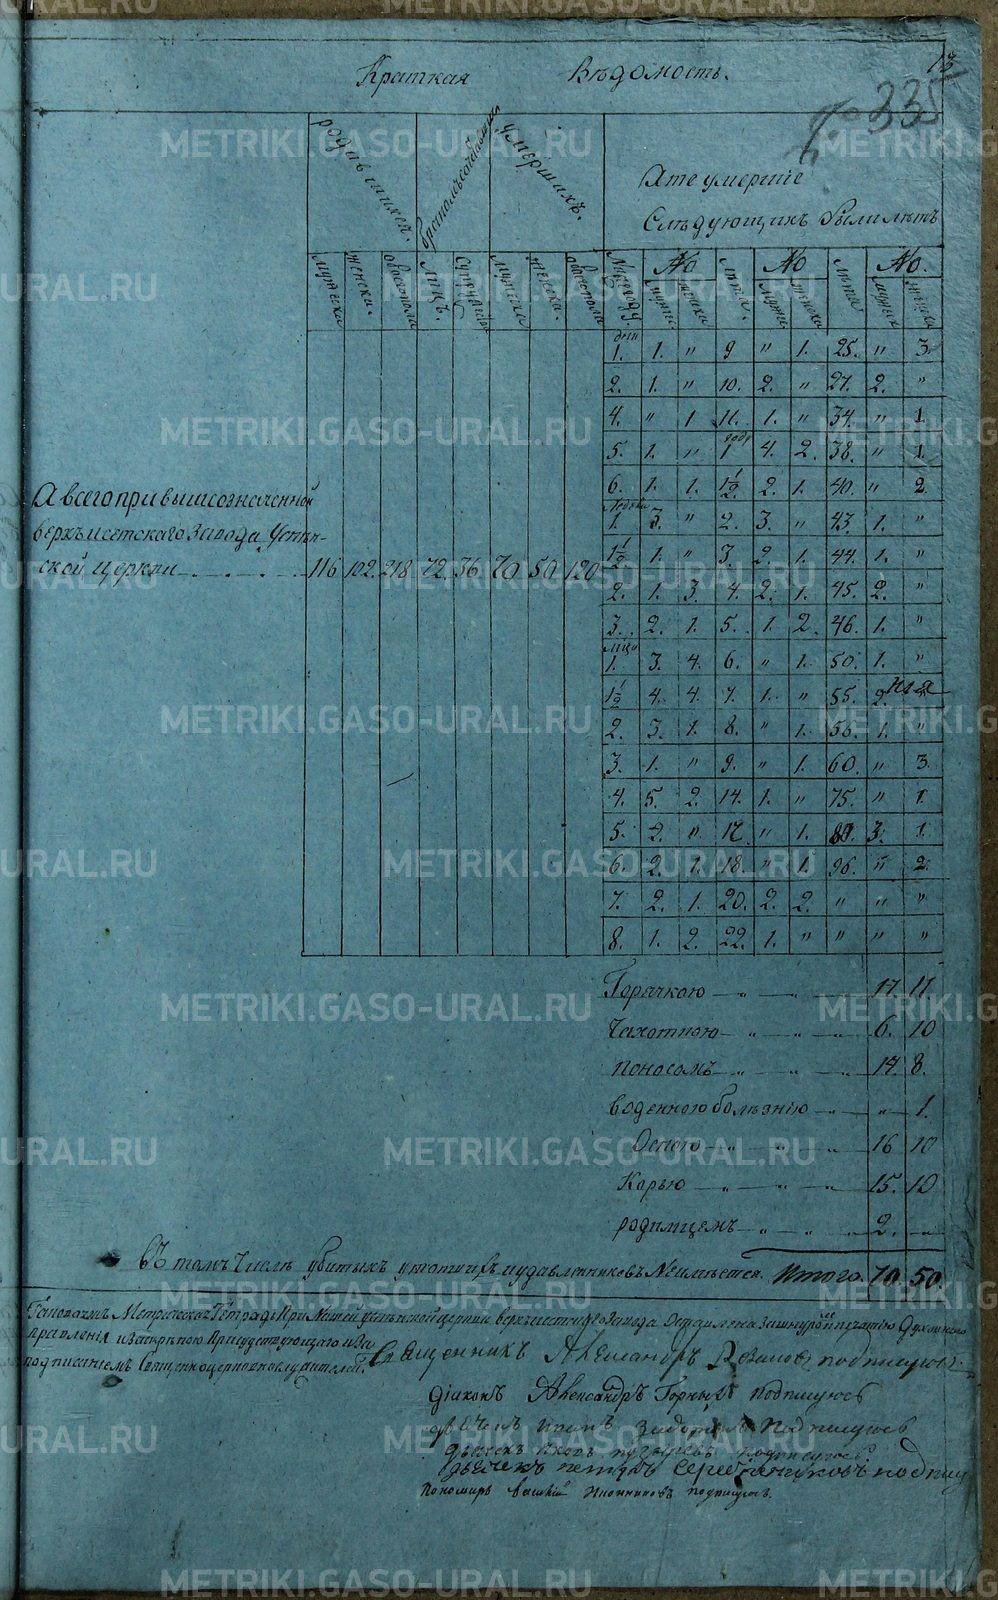 13
335
Краткая Вѣдомость.
родившихся. бракомъ сочетавшихся умершихъ.
А те умершіе
Слѣдующихъ были лѣтъ
No No No.
мужеска женска. обоегопола лицъ. супружествъ мужеска женска. обоегопола лѣта. лѣта
дни
1. 1. " 9 " 1. 25. " 3.
2. 1. " 10. 2. " 27. 2. "
4. " 1 11. 1. " 34. " 1.
году
5. 1. " 1 4. 2. 38. " 1.
6. 1. 1. 1½ 2. 1. 40. " 2
недѣли
1. 3. " 2. 3. " 43. 1. "
1½ 1. " 3. 2. 1. 44. 1. "
2. 1. 3. 4. 2. 1. 45. 2. "
3. 2. 1. 5. 1. 2. 46. 1. "
мца
1. 3. 4. 6. " 1. 50. 1. "
1½ 4. 4. 7. 1. " 55. 2.
2. 3. 1. 8. " 1. 56. 1. "
3. 1. " 9. " 1. 60. " 3.
4. 5. 2. 14. 1. " 75. " 1.
5. 2. " 17. " 1. 3. 1.
6. 2. 1. 18. " 1. 96. " 2.
7. 2. 1. 20. 2. 2. " " "
8. 1. 2. 22. 1. " " " "
А всего при вышеозначенной
верхъисетскаго завода Успен-
ской церкви 116 102. 218 72. 36 70 50 120
Горячкою 17 11
Чахоткою 6. 10
Поносомъ 14 8.
водяною болѣзнію " 1.
Оспою 16 10
Корью 15. 10
родимцемъ 2. "
въ томъ числѣ убитыхъ утопшихъ и удавленниковъ Неимѣется. Итого. 70. 50.
Такова Метрическая Тетрадь При Нашей успенской церкви верхъисетскаго Завода Оставлена за шнуромъ и печатію Духовнаго
правленія и Заскрѣпою Присудствующаго и За
подписаніемъ Священноцерковнослужителей.
Священникъ Александръ подписуюсь.
діаконъ Александръ Горныхъ подписуюсь
дьячекъ подписуюсь
дьячекъ Яковъ подписуюсь
дьячекъ петръ Серебряниковъ подпису
Пономарь Василій Иконниковъ подписуюсь.
METRIKI.GASO-URAL.RU